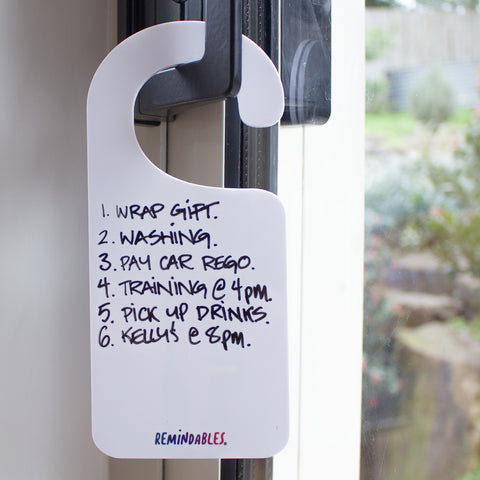 1. WRAP GIFT.
2. WASHING.
3. PAY CAR REGO.
4. TRAINING @ 4pm.
5. PICK UP DRINKS.
6. KELLY'S @ 8pm.
REMINDABLES.